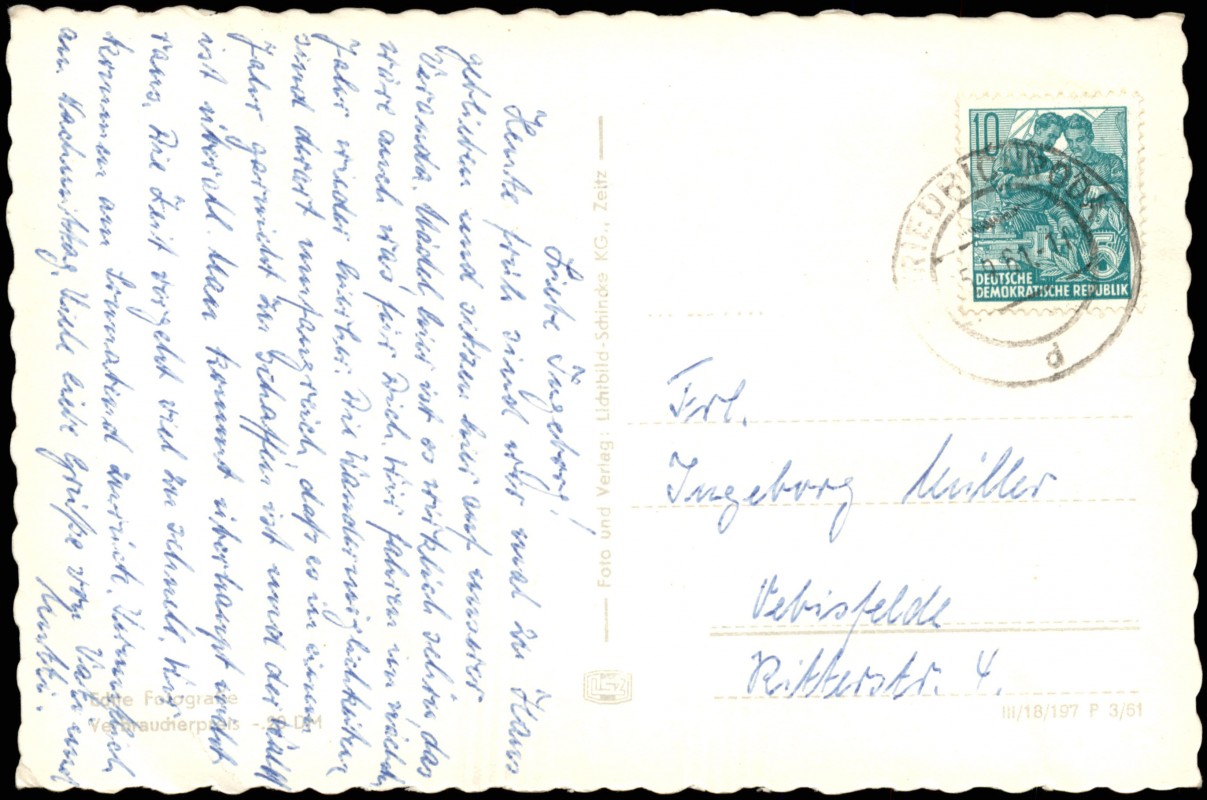 Liebe Ingeborg!
Heute früh sind wir mal zu Haus
geblieben und sitzen hier auf unserer
Veranda. Mädel, hier ist es wirklich schön, das
wäre auch was für Dich. Wir fahren im nächsten
Jahr wieder hierher. Die Wandermöglichkeiten
sind derart umfangreich, daß es in einem
Jahr garnicht zu schaffen ist und der Wald
ist überall. Man kommt überhaupt nicht
raus. Die Zeit vergeht viel zu schnell. Wir
kommen am Sonnabend zurück. Vermutlich
am Nachmittag. Viele liebe Grüße von Vati und
Mutti.
Echte Fotografie
Verbraucherpreis -.20 DM
Foto und Verlag: Lichtbild-Schincke KG., Zeitz
10
DEUTSCHE
DEMOKRATISCHE REPUBLIK
5
FRIEDRICHRODA
61
d
Frl.
Ingeborg Müller
Oebisfelde
Ritterstr. 4.
III/18/197 P 3/61